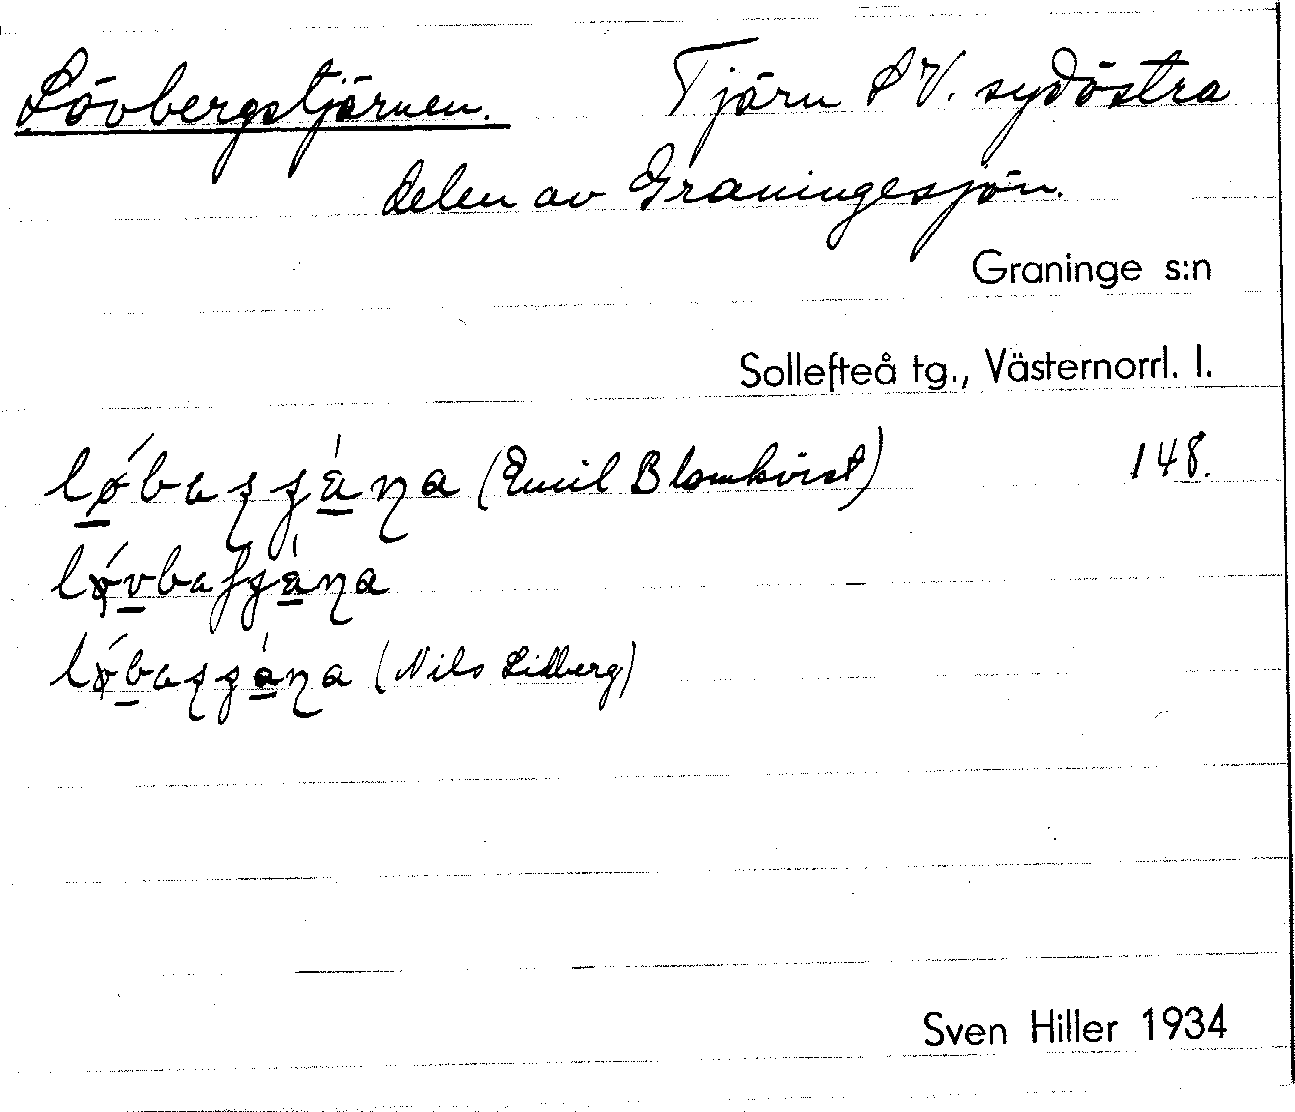 Lövbergstjärnen. Tjärn S V. sydöstra
delen av Graningesjön.
Graninge s:n
Sollefteå tg., Västernorrl. l.
(Emil Blomkvist) 148.
(Nils Lidberg)
Sven Hiller 1934